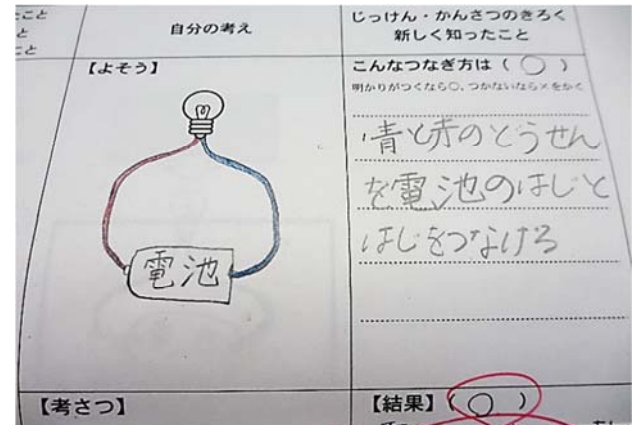 こと
と
こと
自分の考え
じっけん・かんさつのきろく
新しく知ったこと
【よそう】
電池
こんなつなぎ方は（○）
明かりがつくなら○、つかないなら×をかく
・青と赤のとうせん
を電池のはしと
はしをつなげる
【考さつ】
【結果】（○）